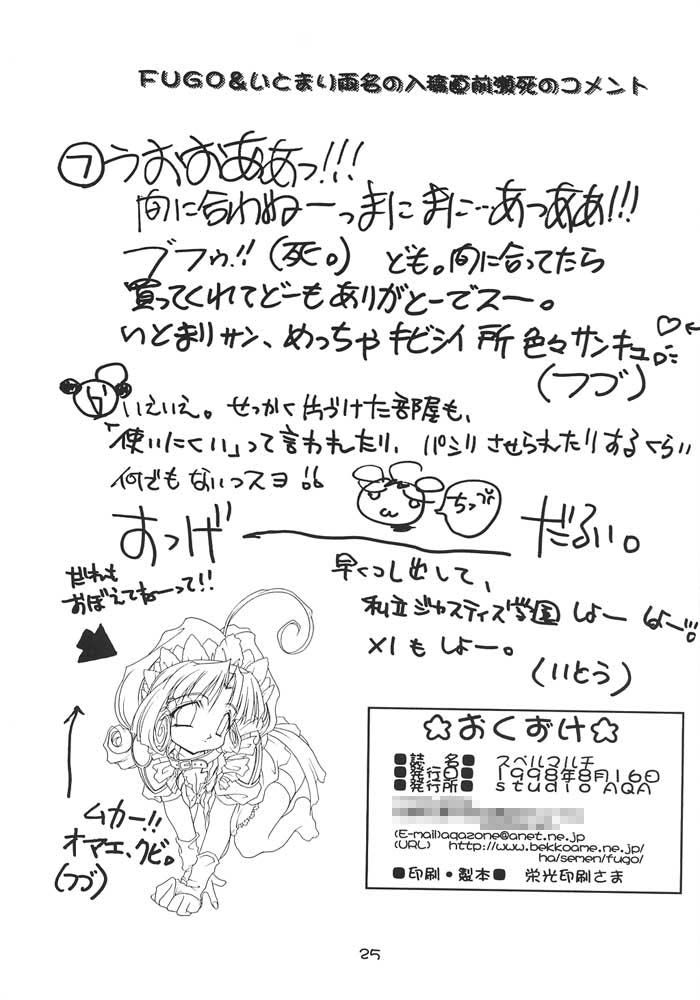 FUGO&いとまり両名の入稿直前瀕死のコメント
フ うおおああっ!!!
間に合わぬーっまにまに…あっああ!!!
ブフゥ!!(死。) ども。間に合ってたら
買ってくれてどーもありがとーでスー。
いとまりサン、めっちゃキビシイ所色々サンキュ
(フヅ)
いえいえ。せっかく片づけた部屋も、
「使いにくい」って言われたり、パシリさせられたりするくらい
何でもないっスヨ!!
ちっ
おっげ――だるい。
だれも
おぼえてねーって!!
早くつし出して、
私立ジャスティス学園しよー しよー!!
XIもしよー。
(いとう)
ムカー!!
オマエ、クビ。
(フヅ)
☆おくづけ☆
■誌 名■ スペルマルチ
■発行日■ 1998年8月16日
■発行所■ studio AQA
(E-mail)aqazone@anet.ne.jp
(URL) http://www.bekkoame.ne.jp/
ha/semen/fugo/
■印刷・製本■ 栄光印刷さま
25